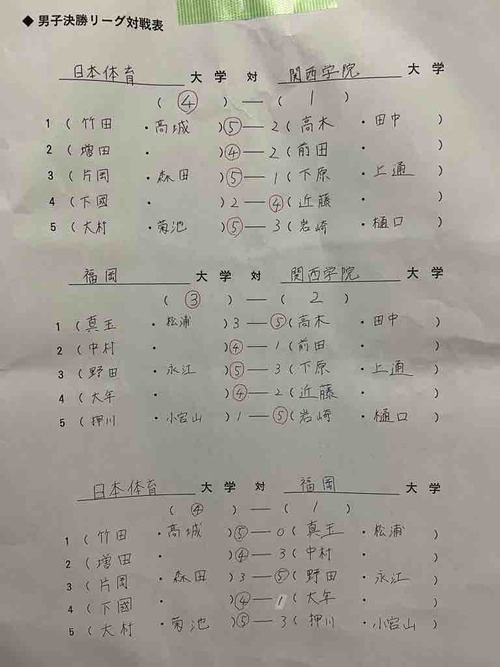 ◆ 男子決勝リーグ対戦表
日本体育 大学 対 関西学院 大学
( ④ ) — ( 1 )
1 ( 竹田 ・ 高城 ) ⑤ — 2 ( 高木 ・ 田中 )
2 ( 増田 ・ ) ④ — 2 ( 前田 ・ )
3 ( 片岡 ・ 森田 ) ⑤ — 1 ( 下原 ・ 上通 )
4 ( 下國 ・ ) 2 — ④ ( 近藤 ・ )
5 ( 大村 ・ 菊池 ) ⑤ — 3 ( 岩崎 ・ 樋口 )
福岡 大学 対 関西学院 大学
( ③ ) — ( 2 )
1 ( 真玉 ・ 松浦 ) 3 — ⑤ ( 高木 ・ 田中 )
2 ( 中村 ・ ) ④ — 1 ( 前田 ・ )
3 ( 野田 ・ 永江 ) ⑤ — 3 ( 下原 ・ 上通 )
4 ( 大年 ・ ) ④ — 2 ( 近藤 ・ )
5 ( 押川 ・ 小宮山 ) 1 — ⑤ ( 岩崎 ・ 樋口 )
日本体育 大学 対 福岡 大学
( ④ ) — ( 1 )
1 ( 竹田 ・ 高城 ) ⑤ — 0 ( 真玉 ・ 松浦 )
2 ( 増田 ・ ) ④ — 3 ( 中村 ・ )
3 ( 片岡 ・ 森田 ) 3 — ⑤ ( 野田 ・ 永江 )
4 ( 下國 ・ ) ④ — 1 ( 大年 ・ )
5 ( 大村 ・ 菊池 ) ⑤ — 3 ( 押川 ・ 小宮山 )